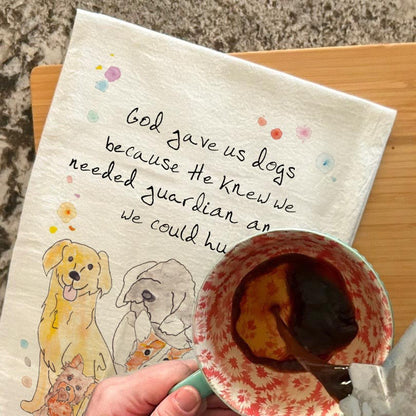 God gave us dogs
because He knew we
needed guardian an
we could hu